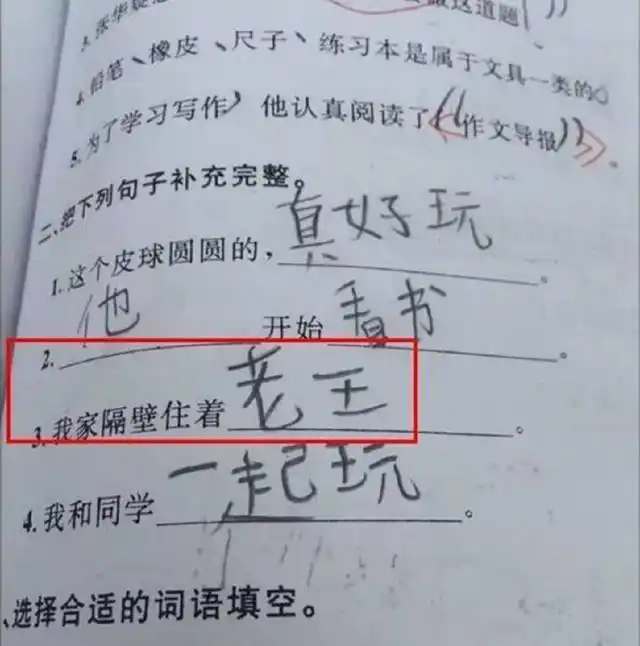 3.张华疑
做这道题
4.铅笔、橡皮、尺子、练习本是属于文具一类的。
5.为了学习写作，他认真阅读了《作文导报》。
二、把下列句子补充完整。
1.这个皮球圆圆的，真好玩。
2.他开始看书。
3.我家隔壁住着老王。
4.我和同学一起玩。
、选择合适的词语填空。